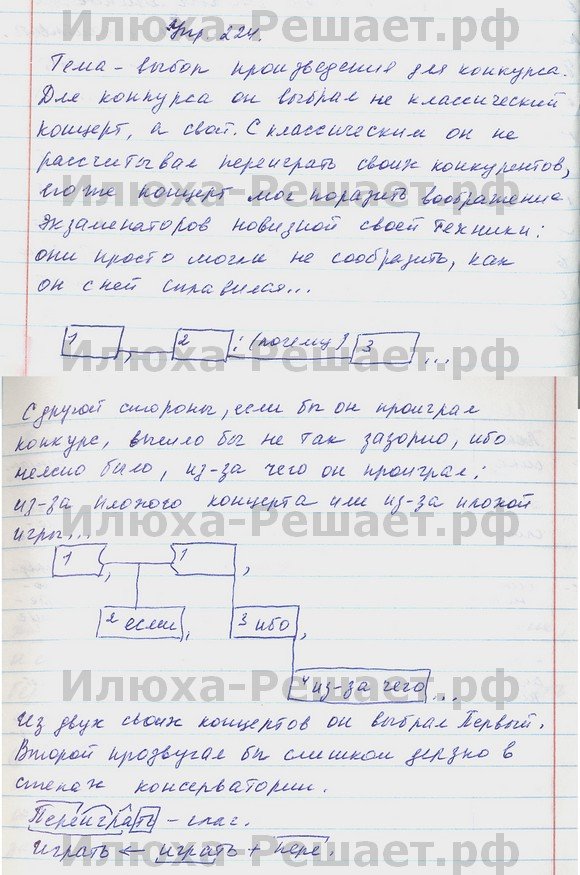 Илюха-Решает.рф
Упр 224.
Тема - выбор произведения для конкурса.
Для конкурса он выбрал не классический
концерт, а свой. С классическим он не
рассчитывал переиграть своих конкурентов,
его же концерт мог поразить воображение
Илюха-Решает.рф
экзаменаторов новизной своей техники:
они просто могли не сообразить, как
он с ней справился...
1 , 2 : (почему?) 3 ...
Илюха-Решает.рф
С другой стороны, если бы он проиграл
конкурс, вышло бы не так зазорно, ибо
неясно было, из-за чего он проиграл:
из-за плохого концерта или из-за плохой
Илюха-Решает.рф
игры...
1 , 1 ,
2 если, 3 ибо ,
4 из-за чего ...
Илюха-Решает.рф
Из двух своих концертов он выбрал Первый.
Второй прозвучал бы слишком дерзко в
стенах консерватории.
Переиграть - глаг.
играть ← играть + пере.
Илюха-Решает.рф